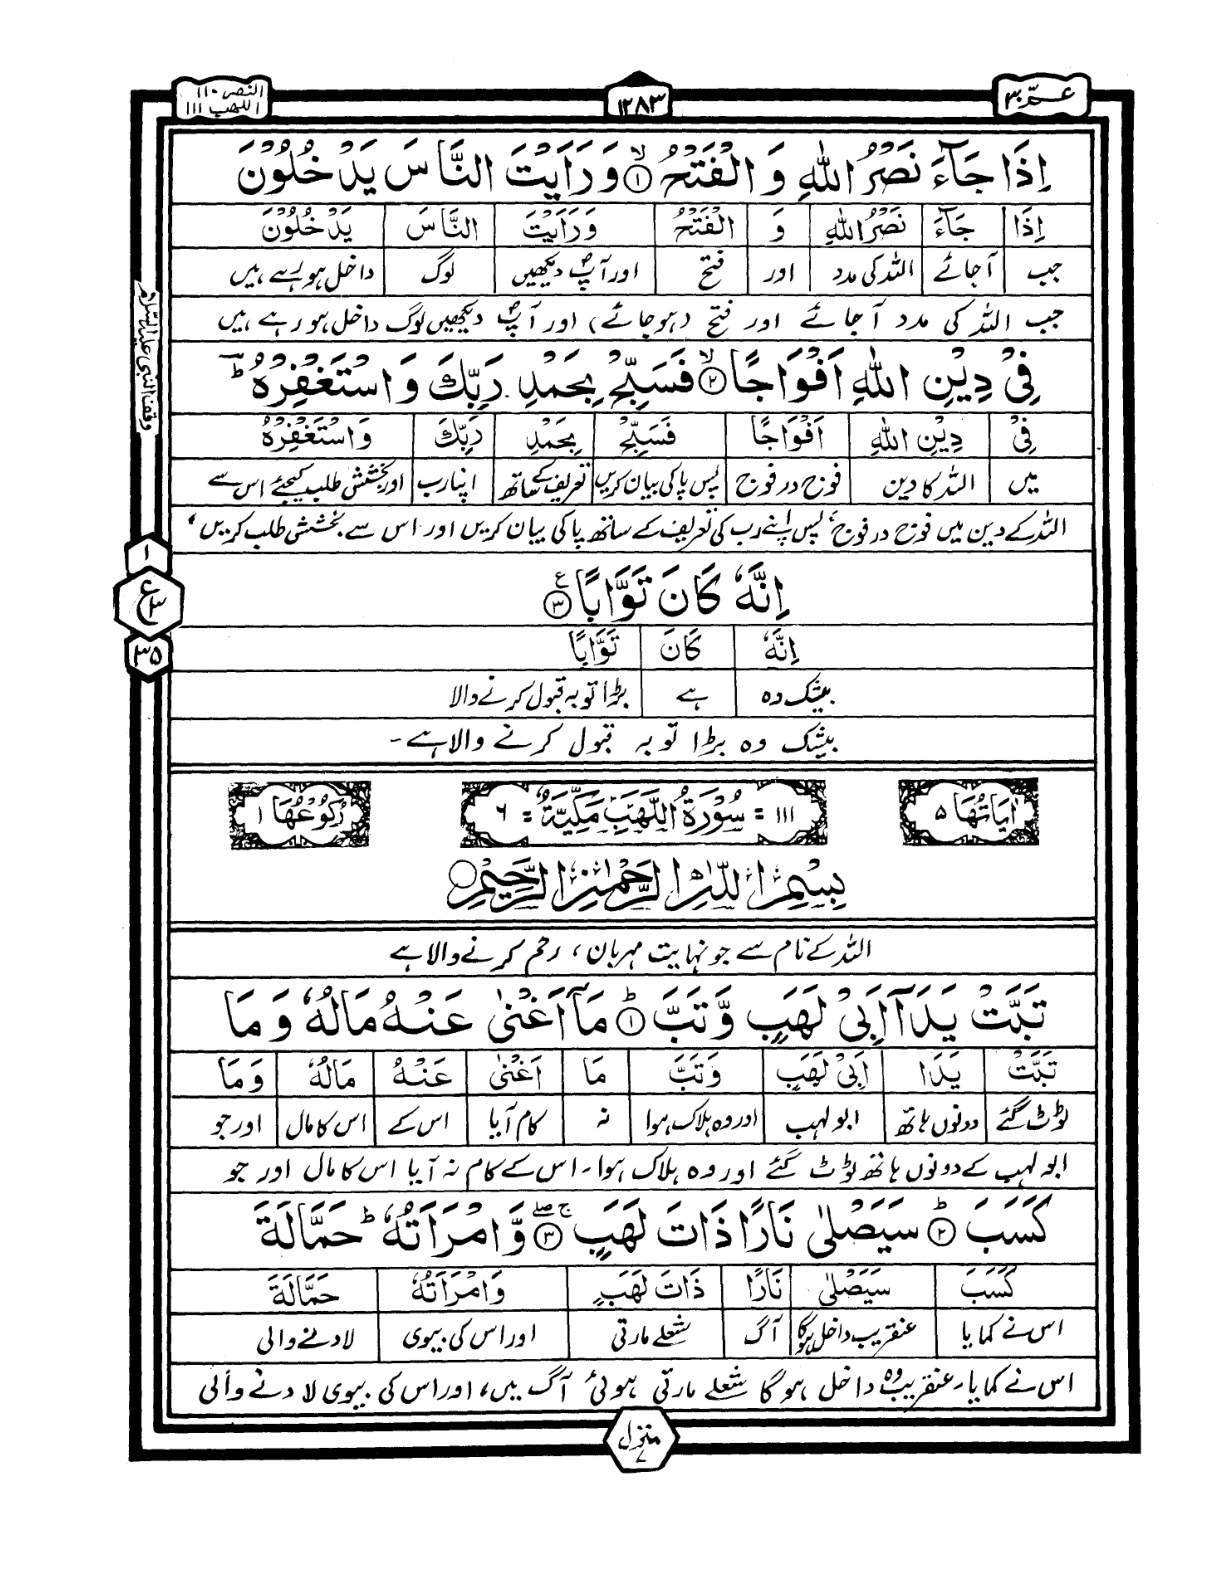 عمّ ۳۰
۱۲۸۳
النصر ۱۱۰
اللهب ۱۱۱
اِذَا جَآءَ نَصْرُ اللّٰهِ وَ الْفَتْحُ ۙ﴿۱﴾ وَ رَاَيْتَ النَّاسَ يَدْخُلُوْنَ
اِذَا جَآءَ نَصْرُ اللّٰهِ وَ الْفَتْحُ وَرَاَيْتَ النَّاسَ يَدْخُلُوْنَ
جب آجائے اللہ کی مدد اور فتح اور آپؐ دیکھیں لوگ داخل ہو رہے ہیں
جب اللہ کی مدد آجائے اور فتح (ہوجائے) اور آپؐ دیکھیں لوگ داخل ہو رہے ہیں
فِيْ دِيْنِ اللّٰهِ اَفْوَاجًا ۙ﴿۲﴾ فَسَبِّحْ بِحَمْدِ رَبِّكَ وَ اسْتَغْفِرْهُ ؕ
فِيْ دِيْنِ اللّٰهِ اَفْوَاجًا فَسَبِّحْ بِحَمْدِ رَبِّكَ وَاسْتَغْفِرْهُ
میں اللہ کا دین فوج در فوج پس پاکی بیان کریں تعریف کے ساتھ اپنا رب اور بخشش طلب کیجئے اس سے
اللہ کے دین میں فوج در فوج، پس اپنے رب کی تعریف کے ساتھ پاکی بیان کریں اور اس سے بخشش طلب کریں،
اِنَّهٗ كَانَ تَوَّابًا ﴿۳﴾ ع
اِنَّهٗ كَانَ تَوَّابًا
بیشک وہ ہے بڑا توبہ قبول کرنے والا
بیشک وہ بڑا توبہ قبول کرنے والا ہے۔
وقف النبی علیہ السلام
۱
ع ۳
۳۵
اٰيَاتُهَا ۵
۱۱۱ = سُوْرَةُ اللَّهَبِ مَكِّيَّةٌ = ۶
رُكُوْعُهَا ۱
بِسْمِ اللّٰهِ الرَّحْمٰنِ الرَّحِيْمِ
اللہ کے نام سے جو نہایت مہربان، رحم کرنے والا ہے
تَبَّتْ يَدَاۤ اَبِيْ لَهَبٍ وَّ تَبَّ ؕ﴿۱﴾ مَاۤ اَغْنٰى عَنْهُ مَالُهٗ وَ مَا
تَبَّتْ يَدَا اَبِيْ لَهَبٍ وَتَبَّ مَا اَغْنٰى عَنْهُ مَالُهٗ وَمَا
ٹوٹ گئے دونوں ہاتھ ابو لہب اور وہ ہلاک ہوا نہ کام آیا اس کے اس کا مال اور جو
ابو لہب کے دونوں ہاتھ ٹوٹ گئے اور وہ ہلاک ہوا۔ اس کے کام نہ آیا اس کا مال اور جو
كَسَبَ ؕ﴿۲﴾ سَيَصْلٰى نَارًا ذَاتَ لَهَبٍ ۖۚ﴿۳﴾ وَّ امْرَاَتُهٗ ؕ حَمَّالَةَ
كَسَبَ سَيَصْلٰى نَارًا ذَاتَ لَهَبٍ وَامْرَاَتُهٗ حَمَّالَةَ
اس نے کمایا عنقریب داخل ہوگا آگ شعلے مارتی اور اس کی بیوی لادنے والی
اس نے کمایا۔ عنقریب وہ داخل ہوگا شعلے مارتی ہوئی آگ میں، اور اس کی بیوی لادنے والی
منزل ۷